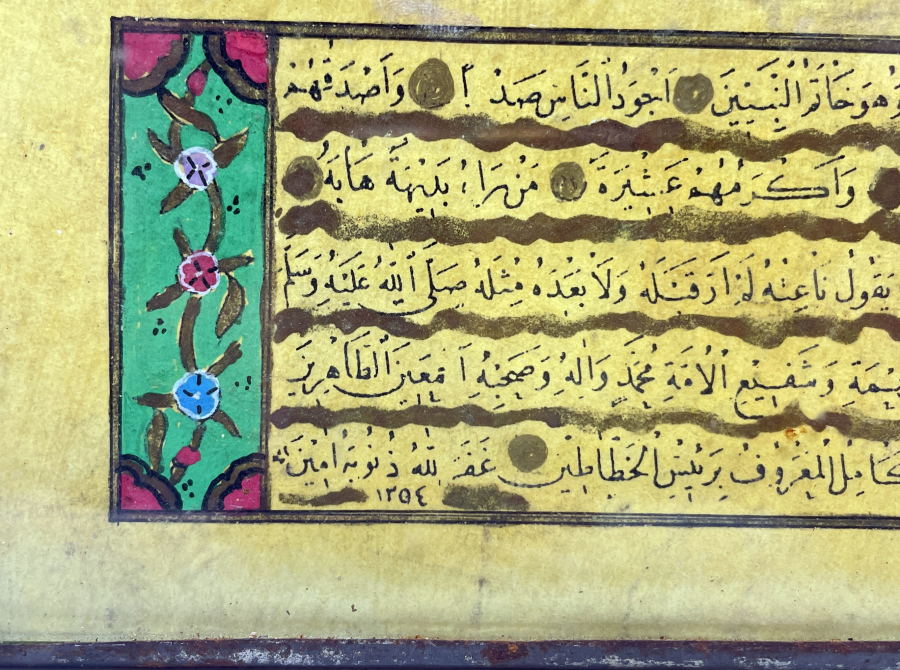 وَهُوَ خَاتَمُ النَّبِيّٖينَ اَجْوَدُ النَّاسِ صَدْ اً وَاَصْدَقُهُمْ
وَاَكْرَمُهُمْ عَشِيرَةً مَنْ رَاٰ بَدِيهَةً هَابَهُ
يَقُولُ نَاعِتُهُ لَمْ اَرَ قَبْلَهُ وَلَا بَعْدَهُ مِثْلَهُ صَلَّى اللّٰهُ عَلَيْهِ وَسَلَّمَ
وَشَفِيعِ الْاُمَّةِ مُحَمَّدٍ وَاٰلِهِ وَصَحْبِهِ اَجْمَعِينَ الطَّاهِرِينَ
كَامِلْ الْمَعْرُوفُ بِرَئِيسِ الْخَطَّاطِينَ غَفَرَ اللّٰهُ ذُنُوبَهُ اٰمِينَ
١٢٥٤